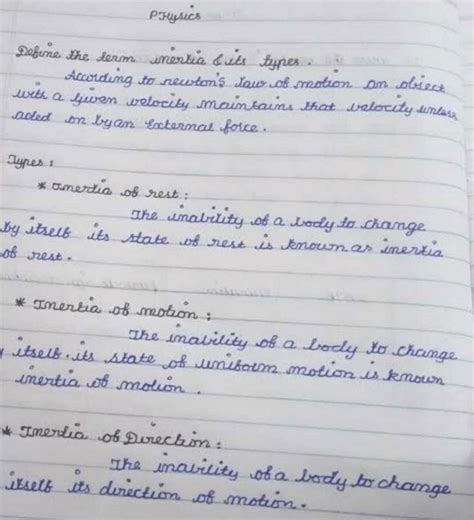 PHysics
Define the term inertia & its types.
According to newton's law of motion an object
with a given velocity maintains that velocity unless
acted on by an External force.
Types :
* Inertia of rest :
The inability of a body to change
by itself its state of rest is known as inertia
of rest.
* Inertia of motion :
The inability of a body to change
itself. its state of uniform motion is known
inertia of motion.
* Inertia of Direction :
The inability of a body to change
itself its direction of motion.